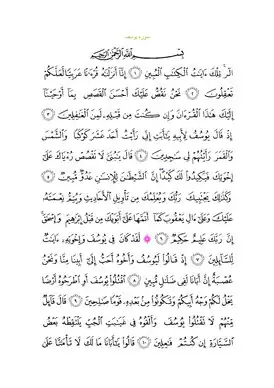 سورة يوسف
بِسْمِ اللَّهِ الرَّحْمَٰنِ الرَّحِيمِ
الٓر ۚ تِلْكَ ءَايَٰتُ ٱلْكِتَٰبِ ٱلْمُبِينِ ۝١ إِنَّآ أَنزَلْنَٰهُ قُرْءَٰنًا عَرَبِيًّا لَّعَلَّكُمْ
تَعْقِلُونَ ۝٢ نَحْنُ نَقُصُّ عَلَيْكَ أَحْسَنَ ٱلْقَصَصِ بِمَآ أَوْحَيْنَآ
إِلَيْكَ هَٰذَا ٱلْقُرْءَانَ وَإِن كُنتَ مِن قَبْلِهِۦ لَمِنَ ٱلْغَٰفِلِينَ ۝٣
إِذْ قَالَ يُوسُفُ لِأَبِيهِ يَٰٓأَبَتِ إِنِّى رَأَيْتُ أَحَدَ عَشَرَ كَوْكَبًا وَٱلشَّمْسَ
وَٱلْقَمَرَ رَأَيْتُهُمْ لِى سَٰجِدِينَ ۝٤ قَالَ يَٰبُنَىَّ لَا تَقْصُصْ رُءْيَاكَ عَلَىٰٓ
إِخْوَتِكَ فَيَكِيدُوا۟ لَكَ كَيْدًا ۖ إِنَّ ٱلشَّيْطَٰنَ لِلْإِنسَٰنِ عَدُوٌّ مُّبِينٌ ۝٥
وَكَذَٰلِكَ يَجْتَبِيكَ رَبُّكَ وَيُعَلِّمُكَ مِن تَأْوِيلِ ٱلْأَحَادِيثِ وَيُتِمُّ نِعْمَتَهُۥ
عَلَيْكَ وَعَلَىٰٓ ءَالِ يَعْقُوبَ كَمَآ أَتَمَّهَا عَلَىٰٓ أَبَوَيْكَ مِن قَبْلُ إِبْرَٰهِيمَ وَإِسْحَٰقَ ۚ
إِنَّ رَبَّكَ عَلِيمٌ حَكِيمٌ ۝٦ لَّقَدْ كَانَ فِى يُوسُفَ وَإِخْوَتِهِۦٓ ءَايَٰتٌ
لِّلسَّآئِلِينَ ۝٧ إِذْ قَالُوا۟ لَيُوسُفُ وَأَخُوهُ أَحَبُّ إِلَىٰٓ أَبِينَا مِنَّا وَنَحْنُ
عُصْبَةٌ إِنَّ أَبَانَا لَفِى ضَلَٰلٍ مُّبِينٍ ۝٨ ٱقْتُلُوا۟ يُوسُفَ أَوِ ٱطْرَحُوهُ أَرْضًا
يَخْلُ لَكُمْ وَجْهُ أَبِيكُمْ وَتَكُونُوا۟ مِنۢ بَعْدِهِۦ قَوْمًا صَٰلِحِينَ ۝٩ قَالَ قَآئِلٌ
مِّنْهُمْ لَا تَقْتُلُوا۟ يُوسُفَ وَأَلْقُوهُ فِى غَيَٰبَتِ ٱلْجُبِّ يَلْتَقِطْهُ بَعْضُ
ٱلسَّيَّارَةِ إِن كُنتُمْ فَٰعِلِينَ ۝١٠ قَالُوا۟ يَٰٓأَبَانَا مَا لَكَ لَا تَأْمَ۫نَّا عَلَىٰ